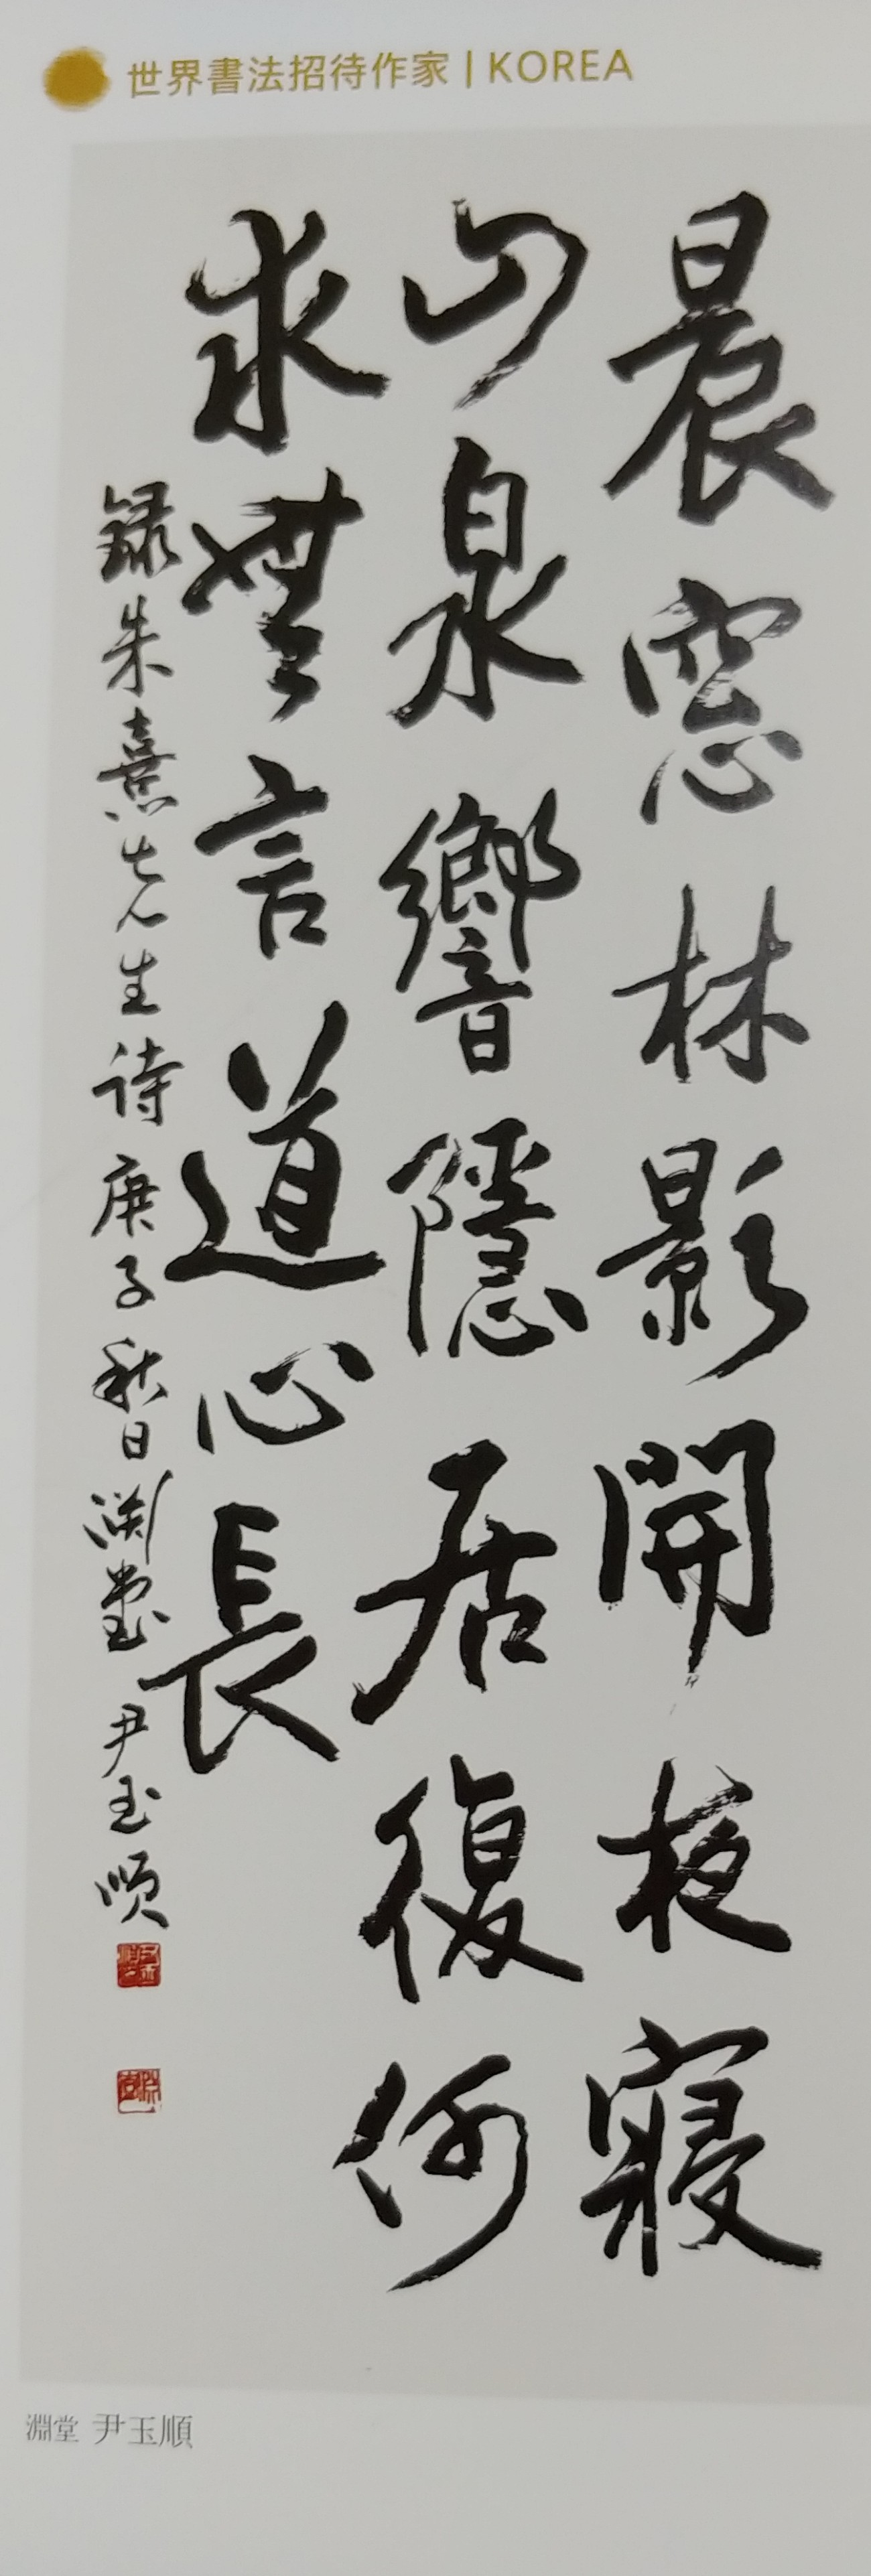 世界書法招待作家 | KOREA
晨窓林影開夜寢
山泉響隱居復何
求無言道心長
録朱熹先生詩庚子秋日渊堂尹玉順
淵堂 尹玉順